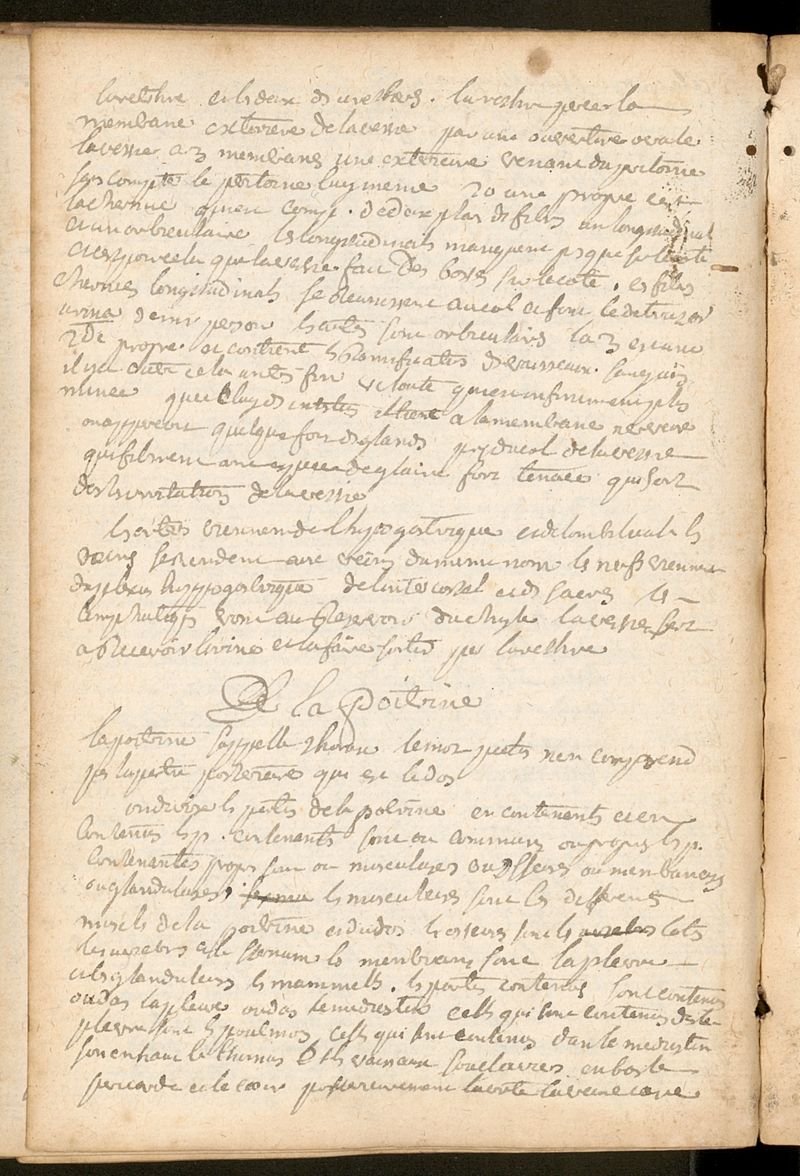 luretshre et les deux d'ureteres. luretshre perce la
membrane exterieure de la vessie par une ouverture ovale
la vessie a 3 membranes une exterieure venant du peritoine
sans compte le peritoine luy meme 2o une propre c'est
la charnue de deux plans de fibres un longitudinal
et un orbiculaire les longitudinals manquent
que la vessie fait des bosses sur le coté. ces fibres
charnues longitudinals se reunissent au col et font le detrusor
urina les autres sont orbiculaires la 3 est une
2de propre et contient les Ramifications de vaisseaux sanguins
il y a outre cela fin veloute qui est infiniment plus
mince que celuy des intestins et tient a la membrane nerveuse
on apperçoit quelque fois des glands du col de la vessie
qui filtrent une espece de glaire fort tenace qui sort
des de la vessie
les arteres viennent de l'hypogastrique et de l'ombilicale les
veines se rendent aux veins du meme nom les nerfs viennent
du plexus hypogastrique de l'intercostal et des sacrés les
lymphatiqs vont au Reservoir du chyle la vessie sert
a Recevoir l'urine et la faire sortir par luretshre
De la Poitrine
la poitrine s'appelle thorax le mot pectus n'en comprend
pas la partie posterieure qui est le dos
on divise les parties de la poitrine en contenants et en
contenus les p. contenants sont ou communes ou propres les p.
contenantes propres sont ou musculaires ou osseuses ou membraneuses
ou glandulaires les musculeuses sont les differens
muscles de la poitrine et du dos les osseuses sont les costes
les vertebres et le sternum les membranes sont la plevre
et les glanduleuses les mammells. les parties contenues sont contenues
ou dans la plevre ou dans le mediastin celles qui sont contenues dans la
plevre sont les poulmons celles qui sont contenues dans le mediastin
sont en haut le thimus & les vaisseaux souclaviers en bas le
pericarde et le coeur posterieurement l'aorte la veine cave